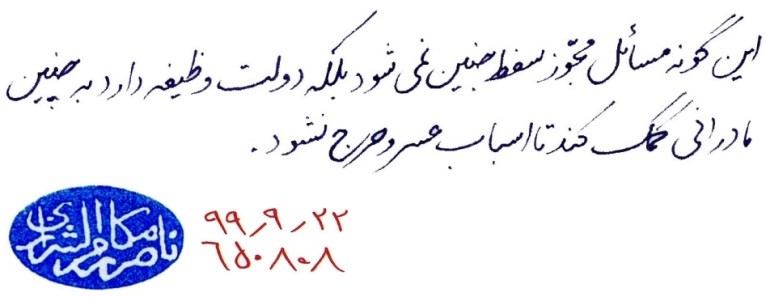 این گونه مسائل مجوّز سقط جنین نمی شود بلکه دولت وظیفه دارد به چنین
مادرانی کمک کند تا اسباب عسر و حرج نشود.
ناصر مکارم الشیرازی
۹۹٫۹٫۲۲
۶۵۰۸۰۸